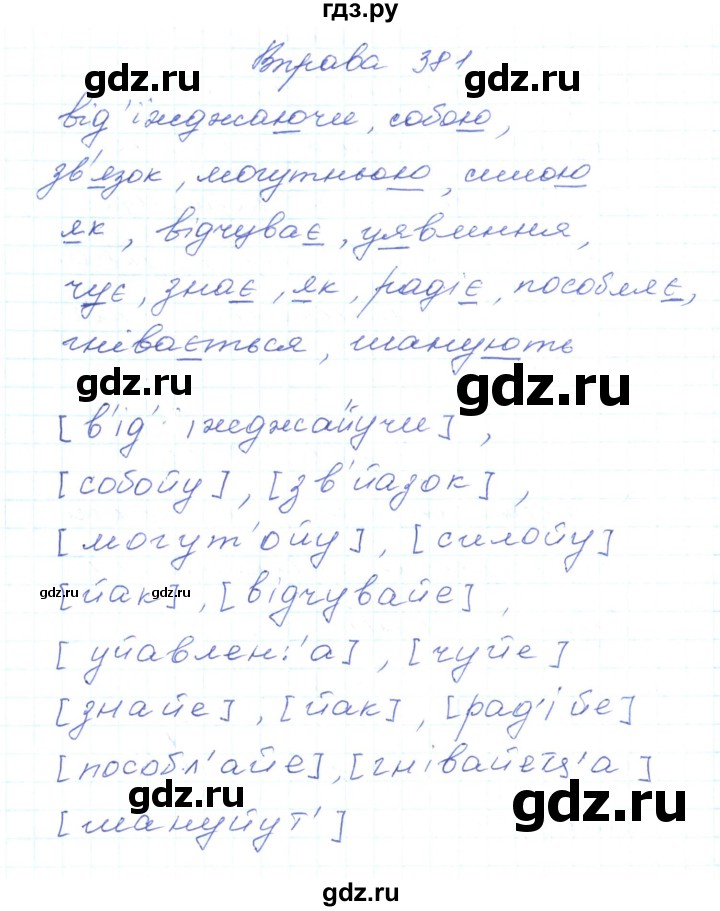 гдз.ру
Вправа 381
gdz.ru gdz.ru
від'їжджаючи, собою,
зв'язок, могутньою, силою
gdz.ru gdz.ru
як, відчуває, уявлення,
чує, знає, як, радіє, пособляє,
gdz.ru gdz.ru
гнівається, шанують
gdz.ru gdz.ru
[в'ід' їжджайучи],
[собойу], [зв'йазок],
[могут'ойу], [силойу]
gdz.ru gdz.ru
[йак], [відчувайе],
[уйавлен:'а], [чуйе]
[знайе], [йак], [рад'ійе]
[пособл'айе], [гнівайетц'а]
gdz.ru gdz.ru
[шануйут']
gdz.ru